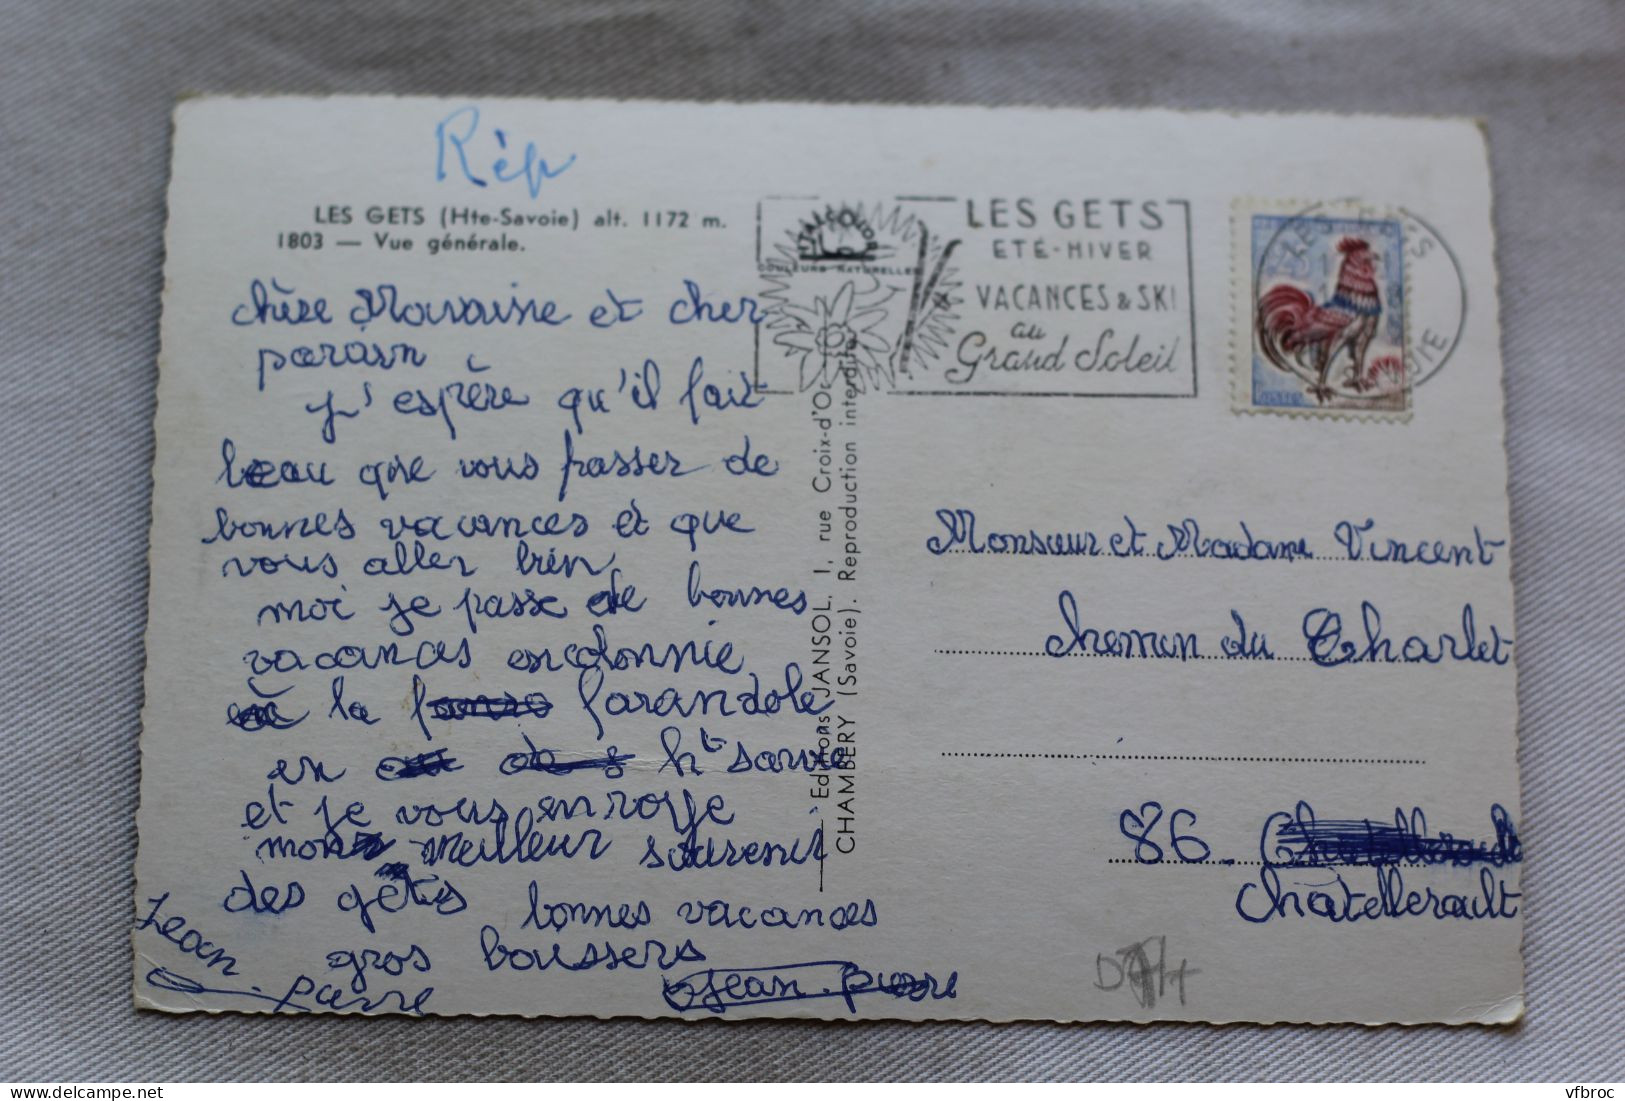 Rép
LES GETS (Hte-Savoie) alt. 1172 m.
1803 — Vue générale.
chère Maraine et cher
parain
J'espère qu'il fait
beau que vous passer de
bonnes vacances et que
vous aller bien
moi je passe de bonnes
vacances encolonnie
à la farandole
en ht savoie
et je vous envoye
mon meilleur souvenir
des gets
bonnes vacances
gros boussers
Jean
pierre
Jean-pierre
ITALCOLOR
COULEURS NATURELLES
LES GETS
ETÉ-HIVER
VACANCES & SKI
au
Grand Soleil
LES GETS
Editions JANSOL, 1, rue Croix-d'Or
CHAMBÉRY (Savoie). Reproduction interdite.
Monsieur et Madame Vincent
chemin du Charlet
86 - Chatellerault
chatellerault
vfbroc